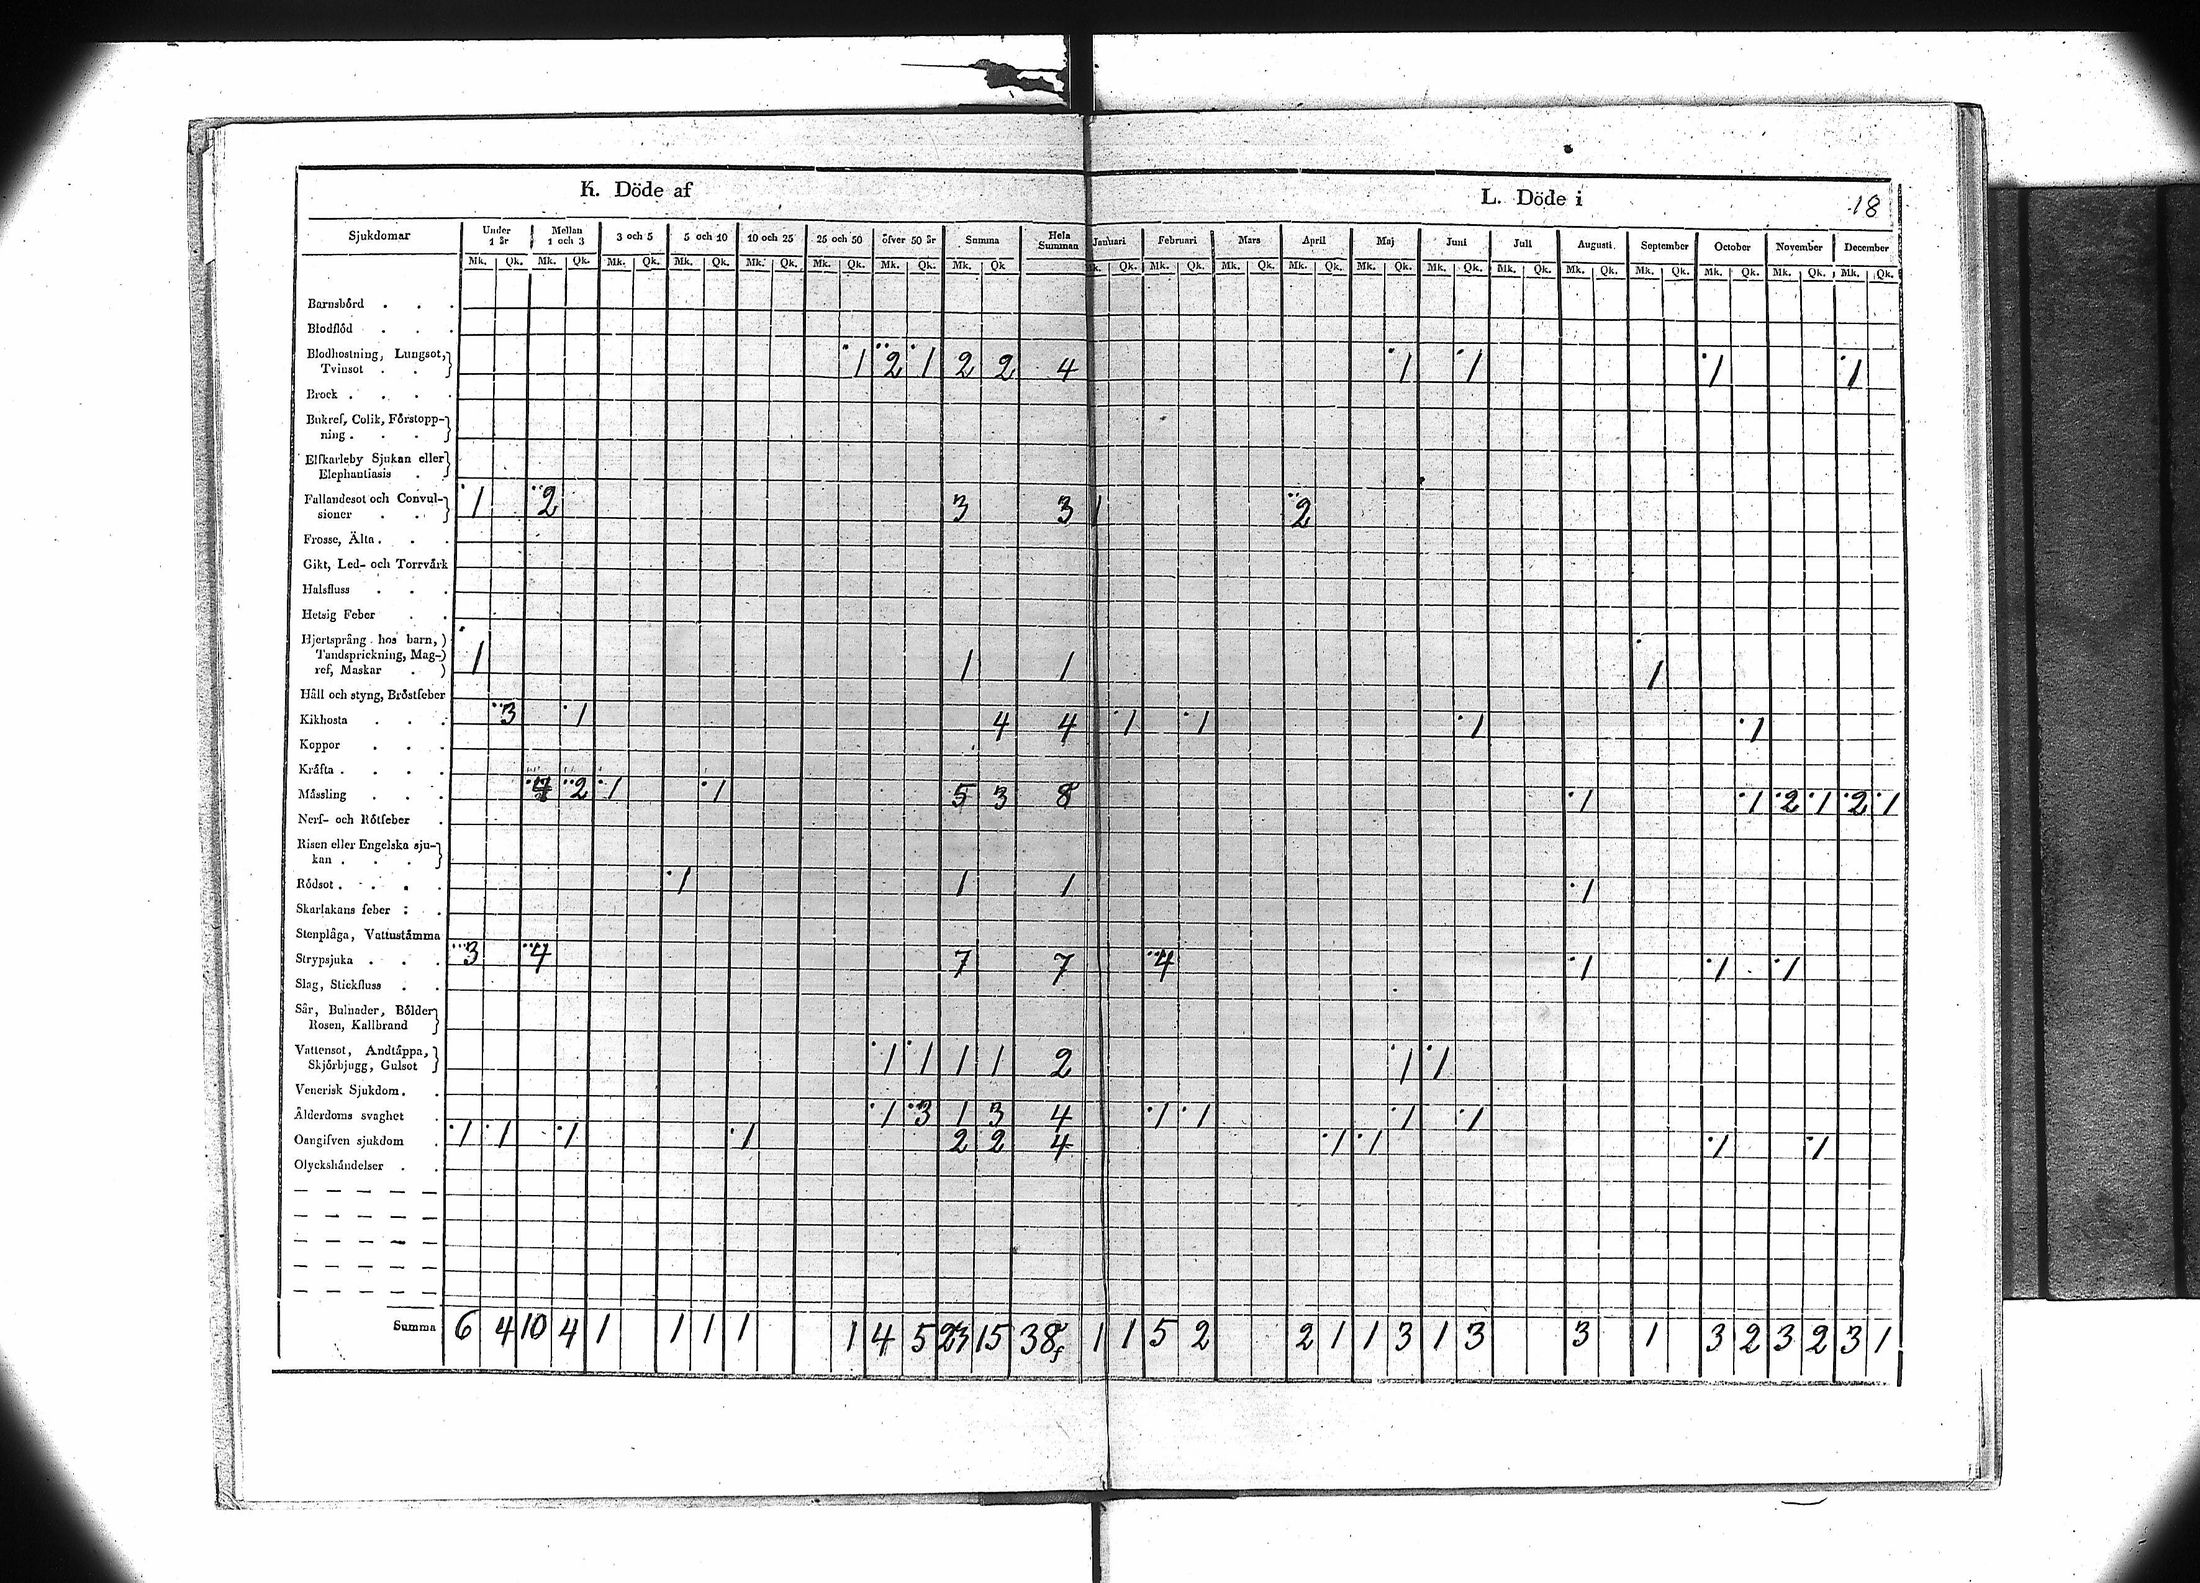 K. Döde af
L. Döde i
18
Sjukdomar Under 1 år Mellan 1 och 3 3 och 5 5 och 10 10 och 25 25 och 50 öfver 50 år Summa Hela Summan Januari Februari Mars April Maj Juni Juli Augusti September October November December
Mk. Qk. Mk. Qk. Mk. Qk. Mk. Qk. Mk. Qk. Mk. Qk. Mk. Qk. Mk. Qk Mk. Qk. Mk. Qk. Mk. Qk. Mk. Qk. Mk. Qk. Mk. Qk. Mk. Qk. Mk. Qk. Mk. Qk. Mk. Qk. Mk. Qk. Mk. Qk.
Barnsbörd . . .
Blodflöd . . .
Blodhostning, Lungsot,
Tvinsot . . 1 2 1 2 2 4 1 1 1 1
Brock . . . .
Bukref, Colik, Förstopp-
ning . . .
Elfkarleby Sjukan eller
Elephantiasis .
Fallandesot och Convul-
sioner . . 1 2 3 3 1 2
Frosse, Älta . . .
Gikt, Led- och Torrvärk
Halsfluss . . .
Hetsig Feber . .
Hjertsprång hos barn,
Tandsprickning, Mag-
ref, Maskar . 1 1 1 1
Håll och styng, Bröstfeber
Kikhosta . . . 3 1 4 4 1 1 1 1
Koppor . . .
Kräfta . . . .
Mässling . . . 4 2 1 1 5 3 8 1 1 2 1 2 1
Nerf- och Rötfeber .
Risen eller Engelska sju-
kan . . .
Rödsot . . . . 1 1 1 1
Skarlakans feber : .
Stenplåga, Vattustämma
Strypsjuka . . . 3 4 7 7 4 1 1 1
Slag, Stickfluss . .
Sår, Bulnader, Bölder
Rosen, Kallbrand
Vattensot, Andtäppa,
Skjörbjugg, Gulsot 1 1 1 1 2 1 1
Venerisk Sjukdom . .
Ålderdoms svaghet . 1 3 1 3 4 1 1 1 1
Oangifven sjukdom . 1 1 1 1 2 2 4 1 1 1 1
Olyckshändelser . .
Summa 6 4 10 4 1 1 1 1 1 4 5 23 15 38 1 1 5 2 2 1 1 3 1 3 3 1 3 2 3 2 3 1